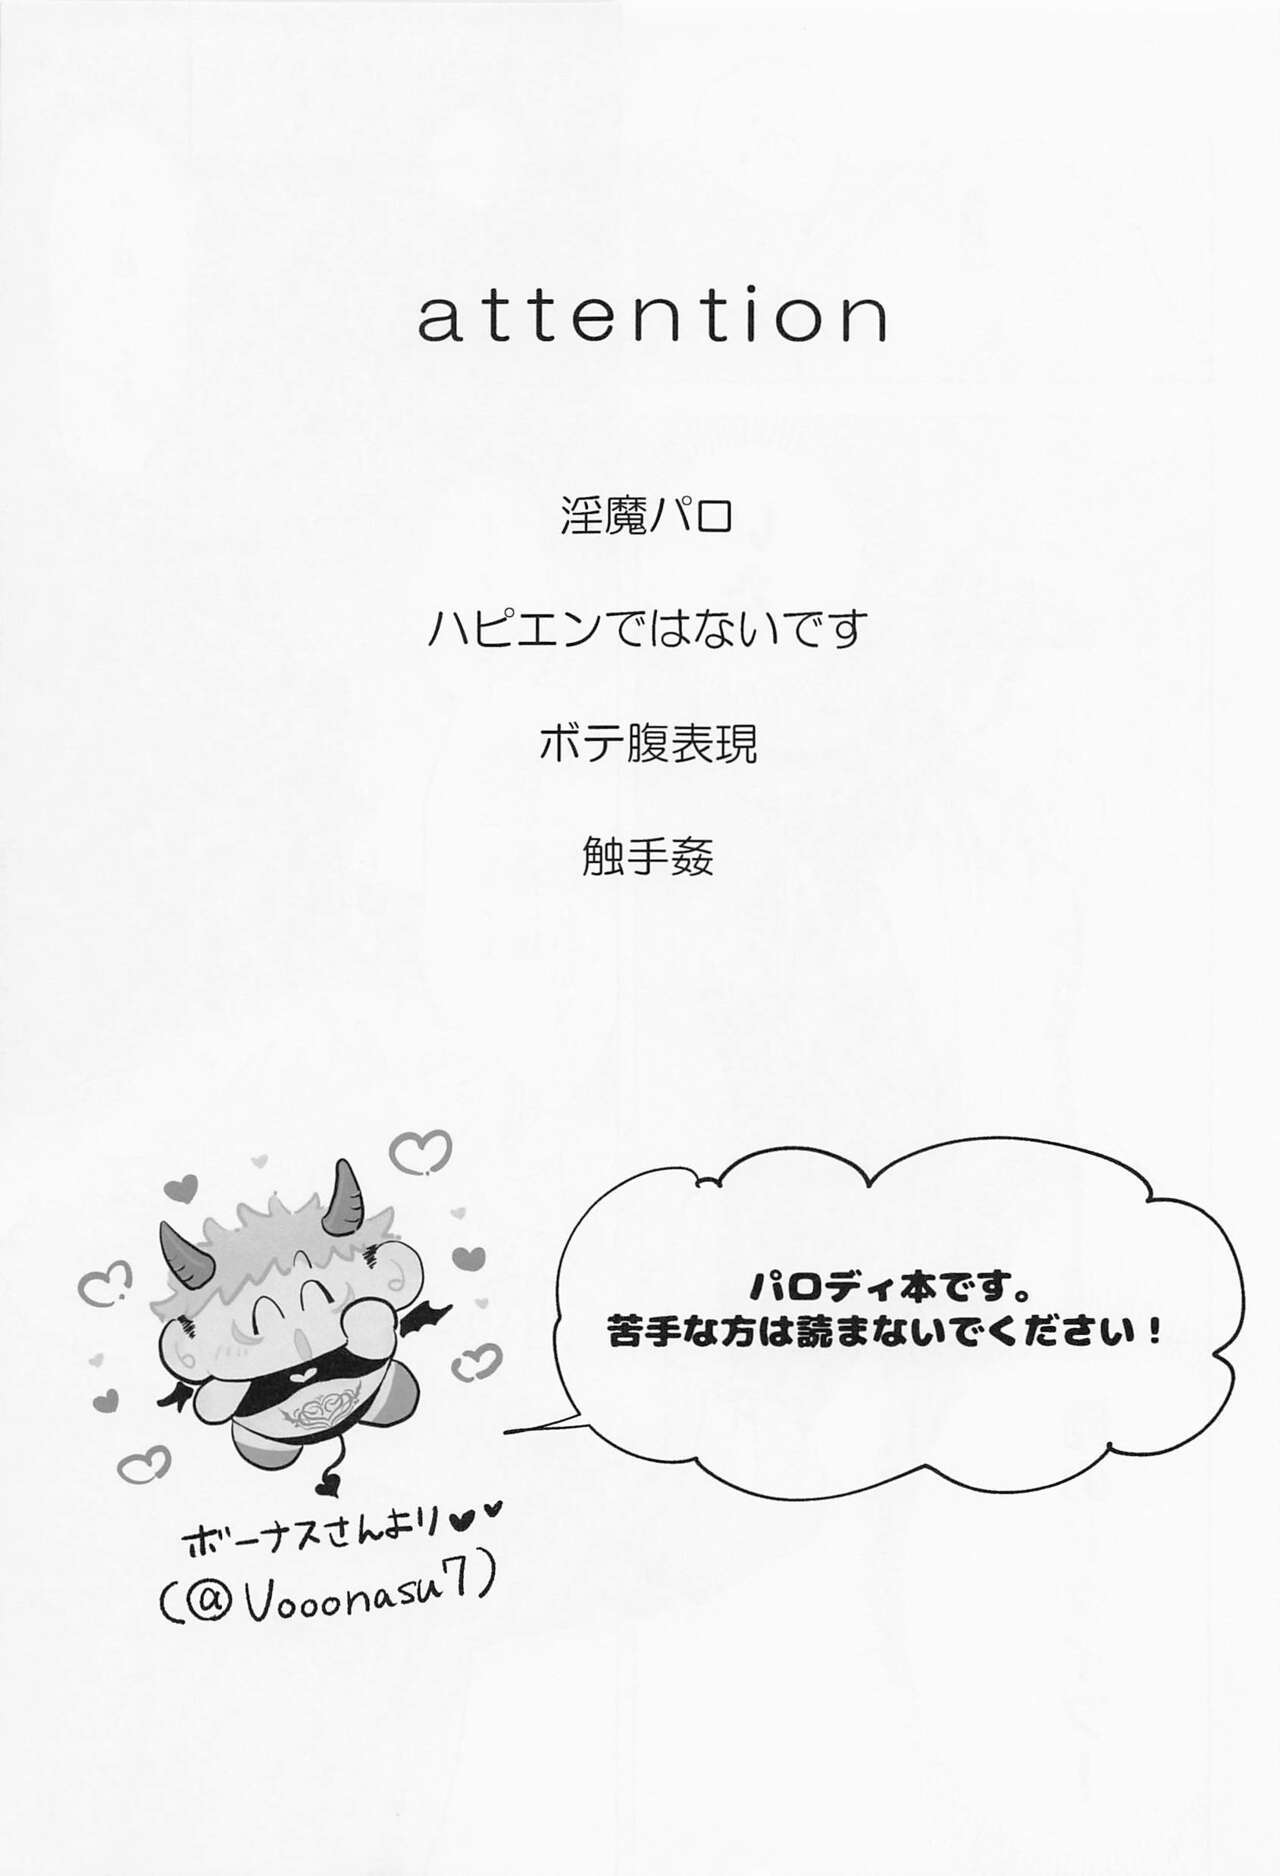 attention
淫魔パロ
ハピエンではないです
ボテ腹表現
触手姦
パロディ本です。
苦手な方は読まないでください！
ボーナスさんより♥♥
(@Vooonasu7)